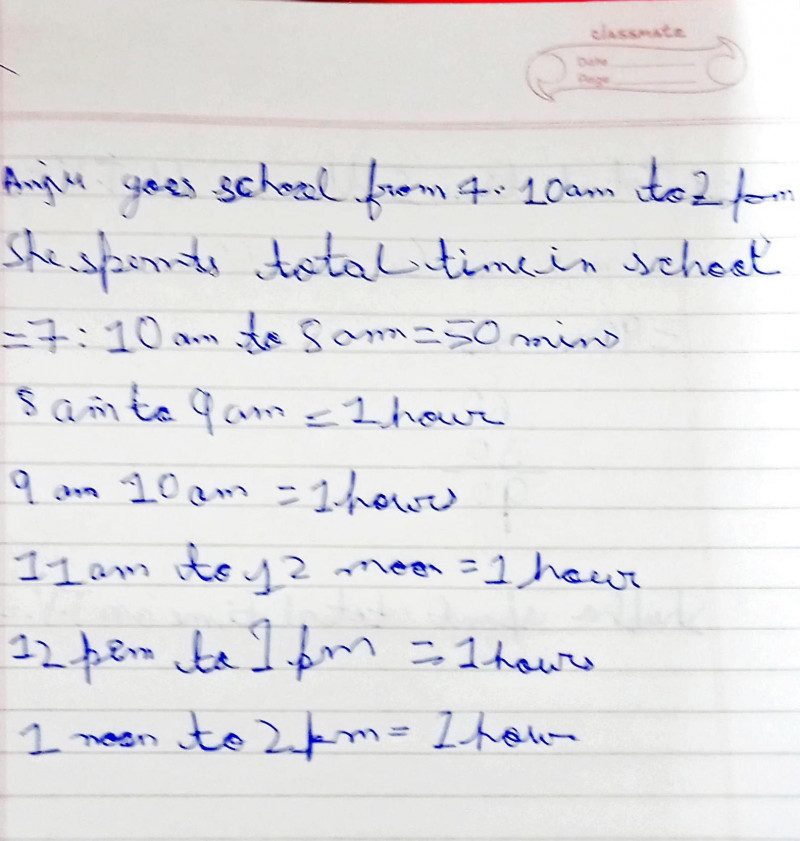 classmate
Date
Page
Anju goes school from 7.10am to 2 pm
She spends total time in school
=7:10 am to 8 am=50 mins
8 am to 9 am = 1 hour
9 am 10 am = 1 hours
11 am to 12 noon = 1 hour
12 pm to 1 pm = 1 hours
1 noon to 2 pm = 1 hour